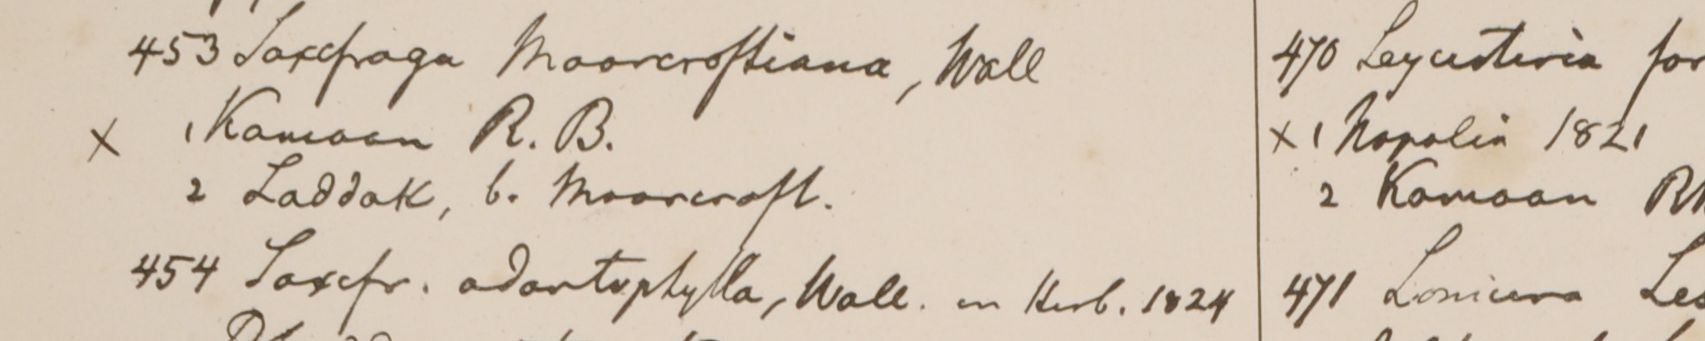 453 Saxifraga Moorcroftiana, Wall
x 1 Kamaon R. B.
2 Laddak, b. Moorcroft.
454 Saxifr. odontophylla, Wall. in Herb. 1824
470 Leycesteria for
x 1 Napalia 1821
2 Kamaon
471 Lonicera